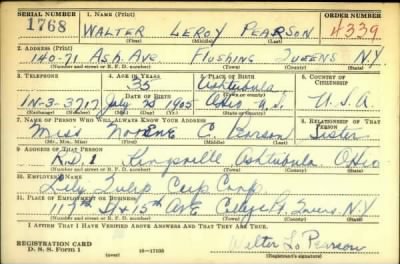 SERIAL NUMBER 1. NAME (Print) ORDER NUMBER
1768 WALTER LEROY PEARSON 4339
(First) (Middle) (Last)
2. ADDRESS (Print)
140-71 ASH AVE FLUSHING QUEENS N.Y.
(Number and street or R. F. D. number) (Town) (County) (State)
3. TELEPHONE 4. AGE IN YEARS 5. PLACE OF BIRTH 6. COUNTRY OF CITIZENSHIP
35 Ashtubula
DATE OF BIRTH
IN-3-3717 July 1905 Ohio U.S. U.S.A
(Exchange) (Number) (Mo.) (Day) (Yr.) (Town or county) (State or country)
7. NAME OF PERSON WHO WILL ALWAYS KNOW YOUR ADDRESS 8. RELATIONSHIP OF THAT PERSON
Miss C. Sister
(Mr., Mrs., Miss) (First) (Middle) (Last)
9. ADDRESS OF THAT PERSON
R.D. 1 Kingsville Ashtubula Ohio
(Number and street or R. F. D. number) (Town) (County) (State)
10. EMPLOYER'S NAME
Lily Tulip Cup Corp.
11. PLACE OF EMPLOYMENT OR BUSINESS
St & 15th Ave College Pt. N.Y
(Number and street or R. F. D. number) (Town) (County) (State)
I AFFIRM THAT I HAVE VERIFIED ABOVE ANSWERS AND THAT THEY ARE TRUE.
REGISTRATION CARD
D. S. S. Form 1 Walter L. Pearson
(Registrant's signature)